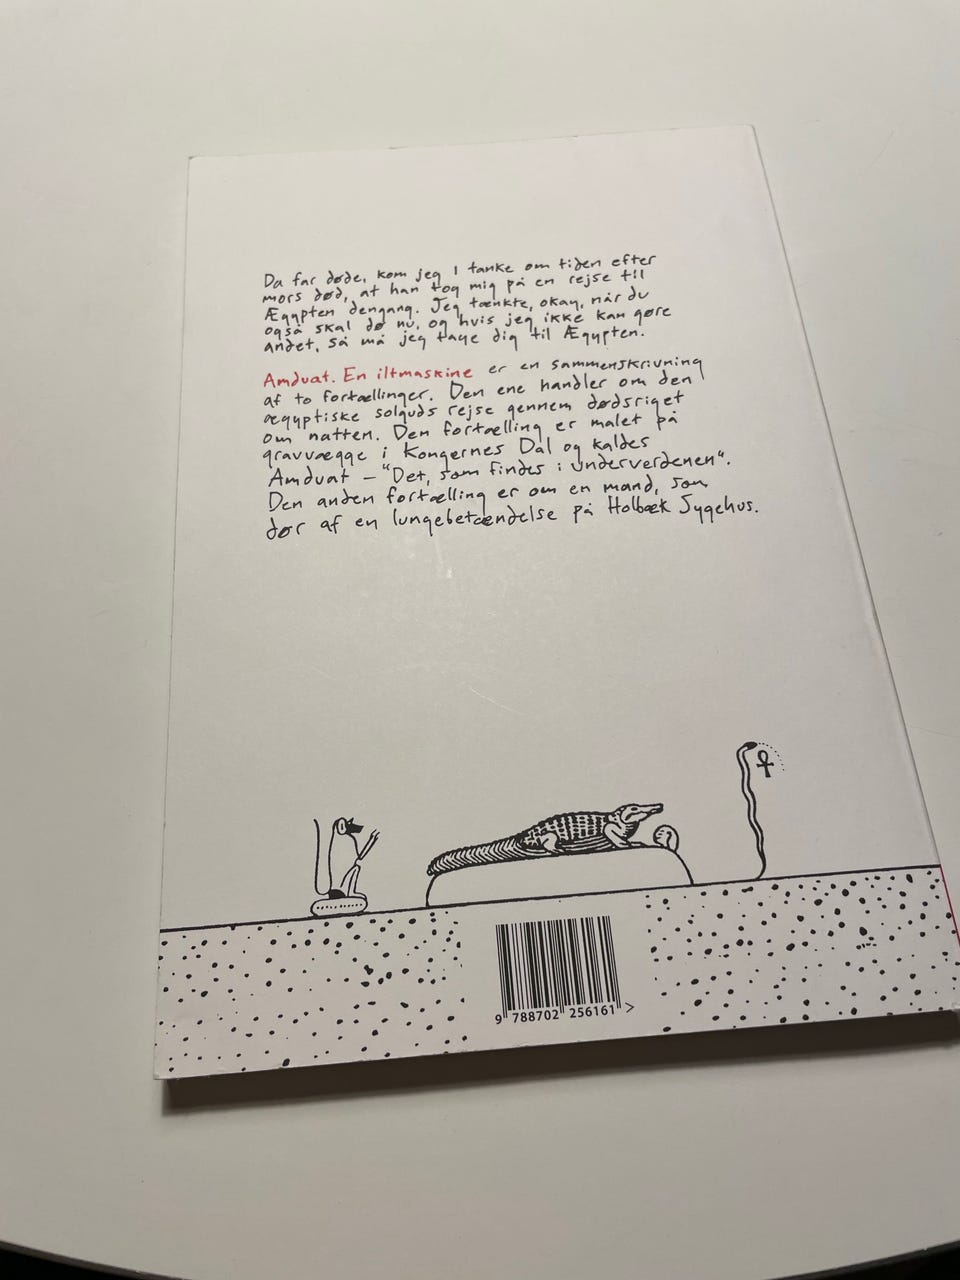 Da far døde, kom jeg i tanke om tiden efter
mors død, at han tog mig på en rejse til
Ægypten dengang. Jeg tænkte, okay, når du
også skal dø nu, og hvis jeg ikke kan gøre
andet, så må jeg tage dig til Ægypten.
Amduat. En iltmaskine er en sammenskrivning
af to fortællinger. Den ene handler om den
ægyptiske solguds rejse gennem dødsriget
om natten. Den fortælling er malet på
gravvægge i Kongernes Dal og kaldes
Amduat – "Det, som findes i underverdenen".
Den anden fortælling er om en mand, som
dør af en lungebetændelse på Holbæk Sygehus.
9 788702 256161 >